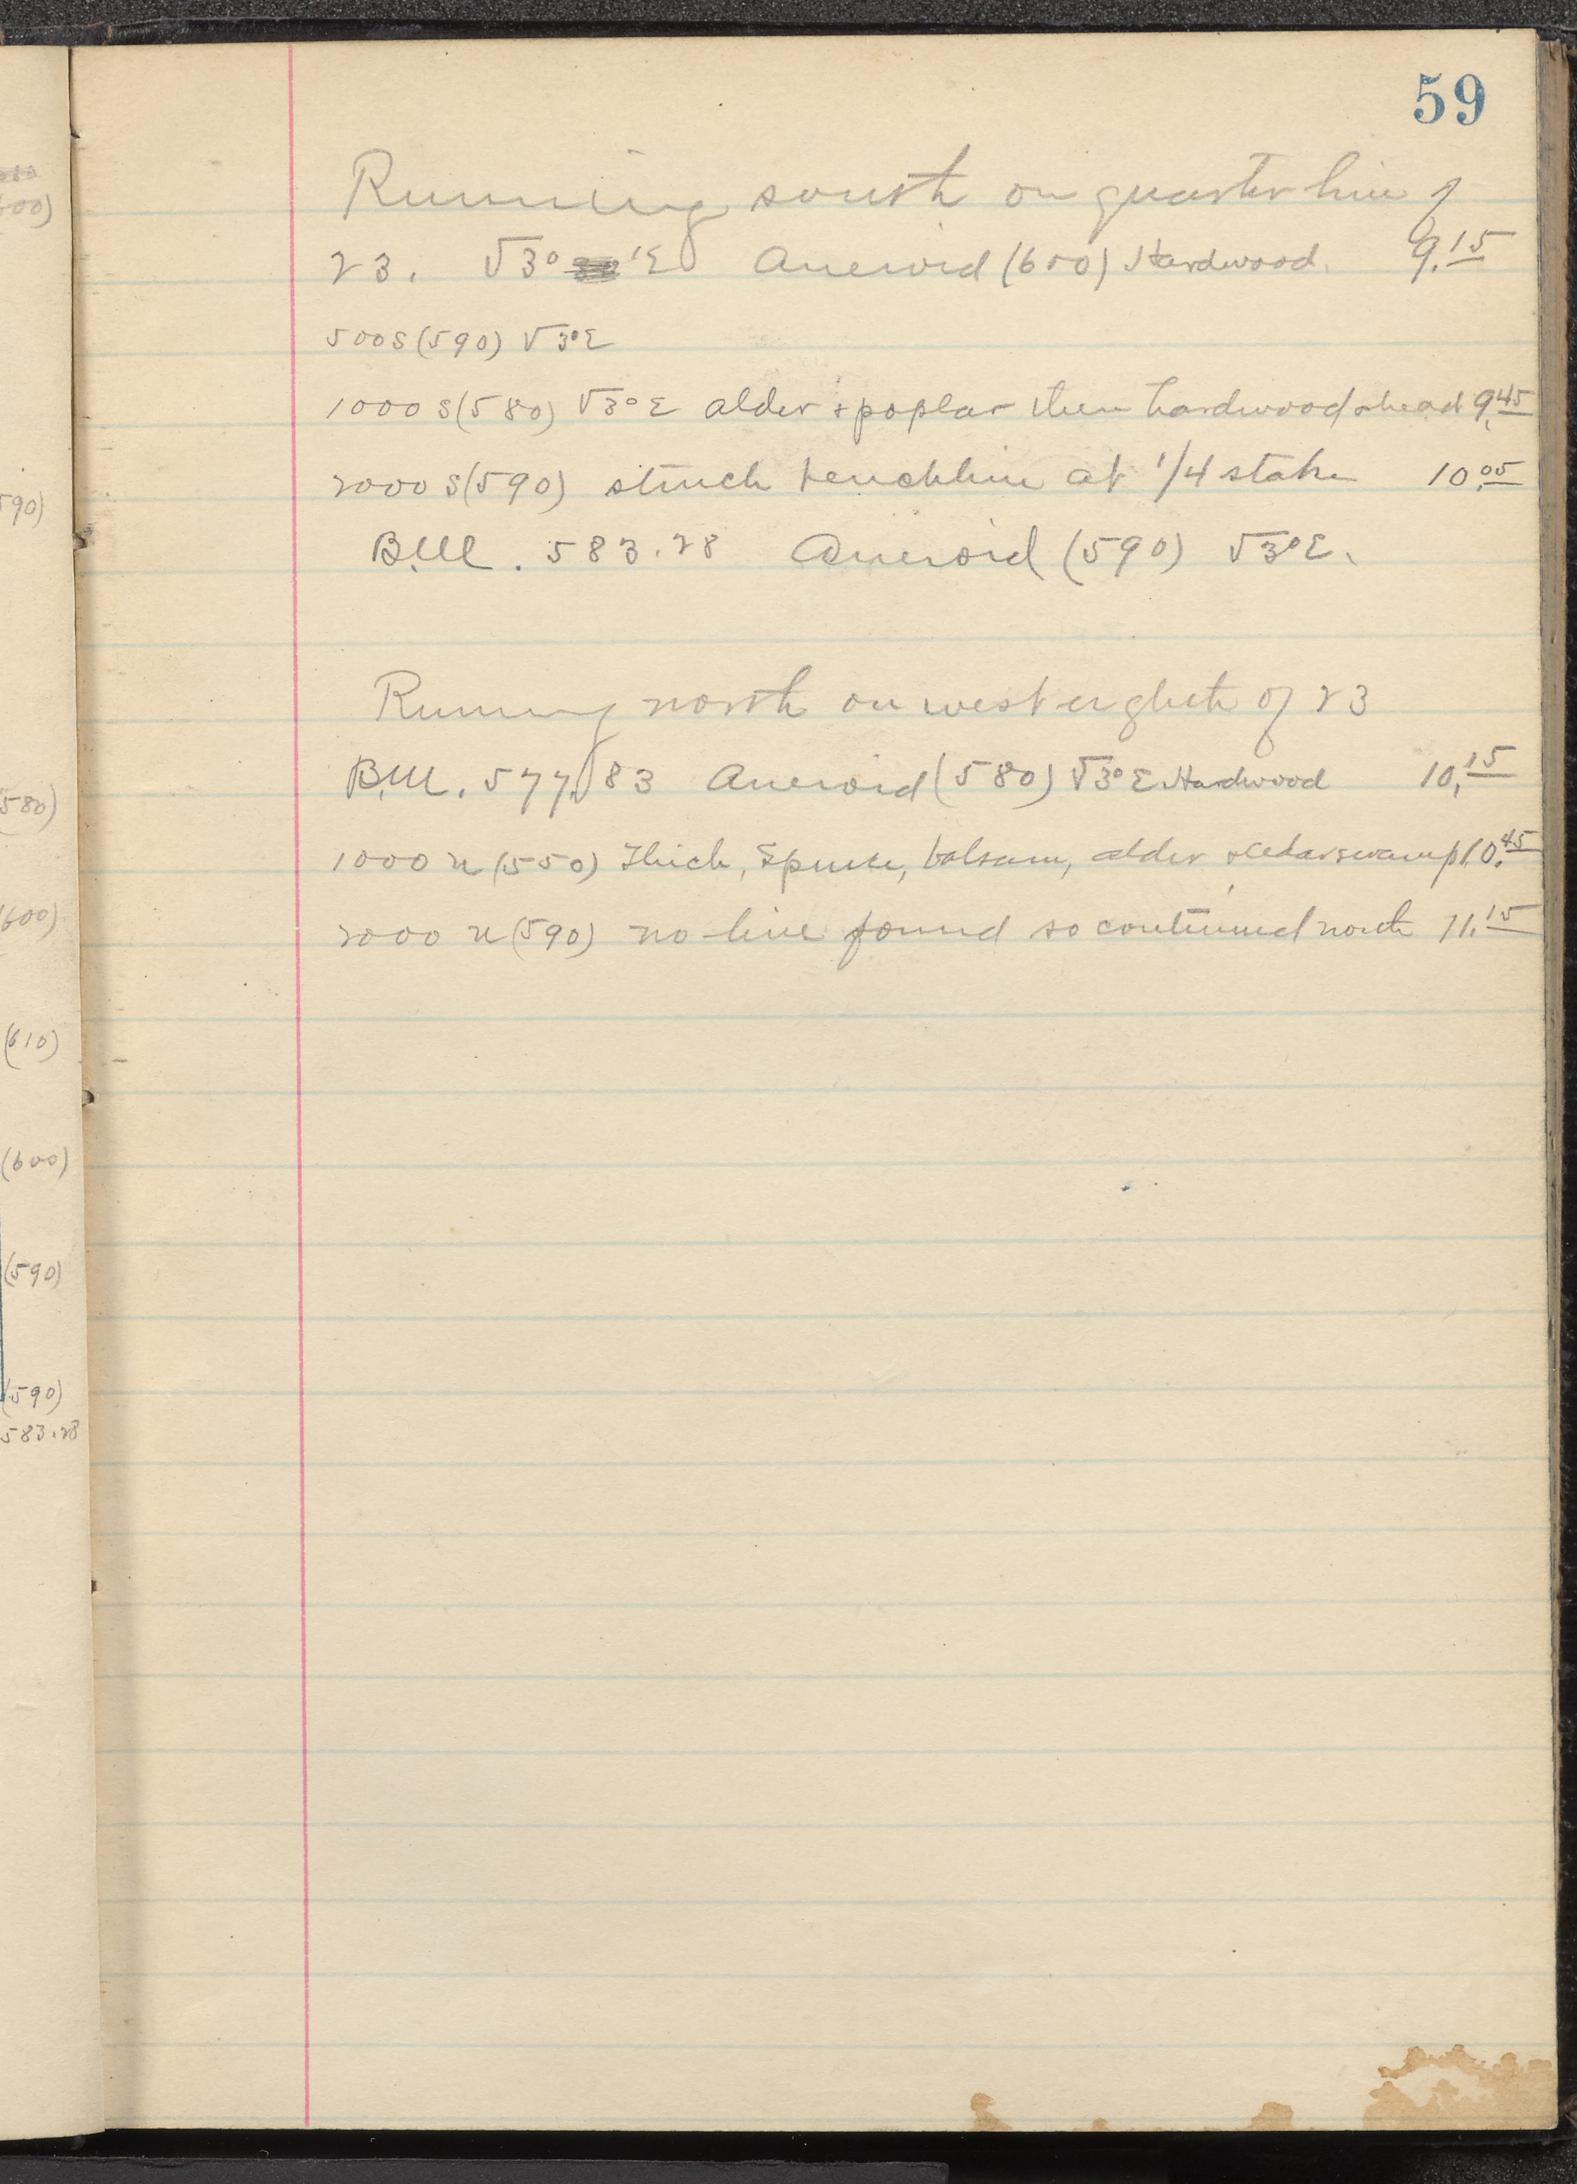 59
Running south on quarter line of
23. √3° 1'E Aneroid (600) Hardwood. 9.15
500 S (590) √3°E
1000 S (580) √3°E alder & poplar then hardwood ahead 9.45
2000 S (590) struck benchline at 1/4 stake 10.05
B.M. 583.28 Aneroid (590) √3°E.
Running north on west eighth of 23
B.M. 577.83 Aneroid (580) √3°E Hardwood 10.15
1000 N (550) Thick, Spruce, balsam, alder & cedar swamp 10.45
2000 N (590) no line found so continued north 11.15
600)
590)
580)
600)
(610)
(600)
(590)
(590)
583.28